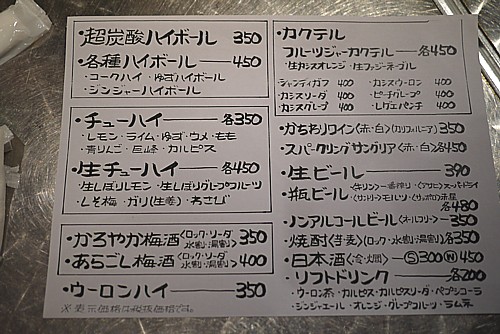 ・超炭酸ハイボール 350
・各種ハイボール 450
・コークハイ・ゆずハイボール
・ジンジャーハイボール
・チューハイ 各350
・レモン・ライム・ゆず・ウメ・もも
・青りんご・巨峰・カルピス
・生チューハイ 各450
・生しぼりレモン・生しぼりグレープフルーツ
・しそ梅・ガリ(生姜)・わさび
・かろやか梅酒〈ロック・ソーダ 水割・湯割〉350
・あらごし梅酒〈ロック・ソーダ 水割・湯割〉400
・ウーロンハイ 350
※表示価格は税抜価格です。
・カクテル
フルーツジャーカクテル 各450
・生カシスオレンジ・生ファジーネーブル
シャンディガフ 400 カシスウーロン 400
カシスソーダ 400 ピーチグレープ 400
カシスグレープ 400 レゲエパンチ 400
・かちわりワイン〈赤・白〉(カリフォルニア) 350
・スパークリングサングリア〈赤・白〉各450
・生ビール 390
・瓶ビール 〈キリン〉一番搾り・〈アサヒ〉スーパードライ
〈サントリー〉モルツ・〈サッポロ〉赤星 各480
・ノンアルコールビール〈オールフリー〉350
・焼酎〈芋・麦〉〈ロック・水割・湯割〉各350
・日本酒〈冷・燗〉 Ⓢ300 Ⓦ450
・ソフトドリンク 各200
・ウーロン茶・カルピス・カルピスソーダ・ペプシコーラ
・ジンジャエール・オレンジ・グレープフルーツ・ラムネ